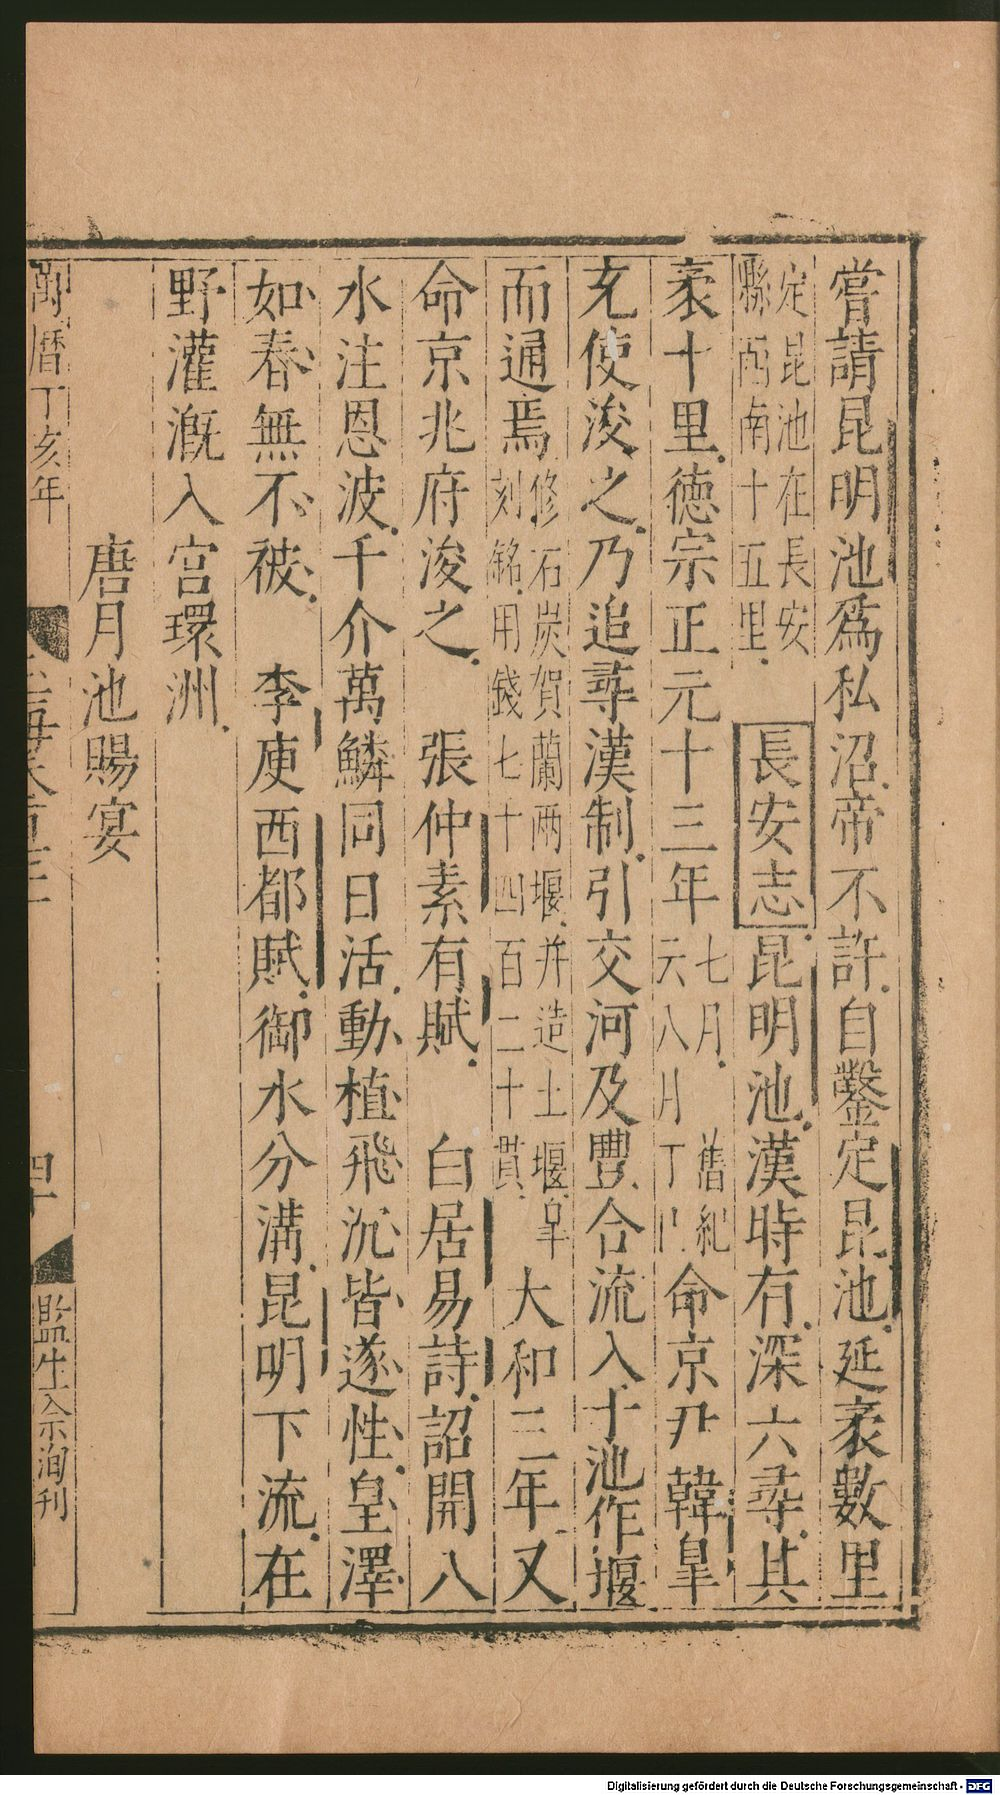 嘗請昆明池爲私沼帝不許自鑿定昆池延袤數里
定昆池在長安
縣西南十五里
長安志昆明池漢時有深六尋其
袤十里德宗正元十三年
七月
舊紀
云八月丁
命京尹韓臯
充使浚之乃追尋漢制引交河及豐合流入于池作堰
而通焉
修石炭賀蘭兩堰并造土堰臯
刻銘用錢七十四百二十貫
大和三年又
命京兆府浚之 張仲素有賦 白居易詩詔開八
水注恩波千介萬鱗同日活動植飛沉皆遂性皇澤
如春無不被 李庾西都賦御水分溝昆明下流在
野灌漑入宫環洲
唐月池賜宴
萬曆丁亥年
四十
監生余洵刊
Digitalisierung gefördert durch die Deutsche Forschungsgemeinschaft - DFG